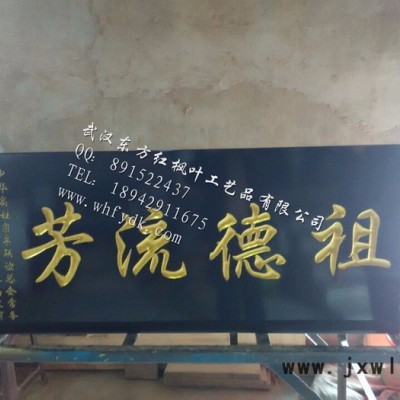 武汉东方红枫叶工艺品有限公司
QQ: 891522437
TEL: 18942911675
www.whfydk.com
祖德流芳
www.jxwl